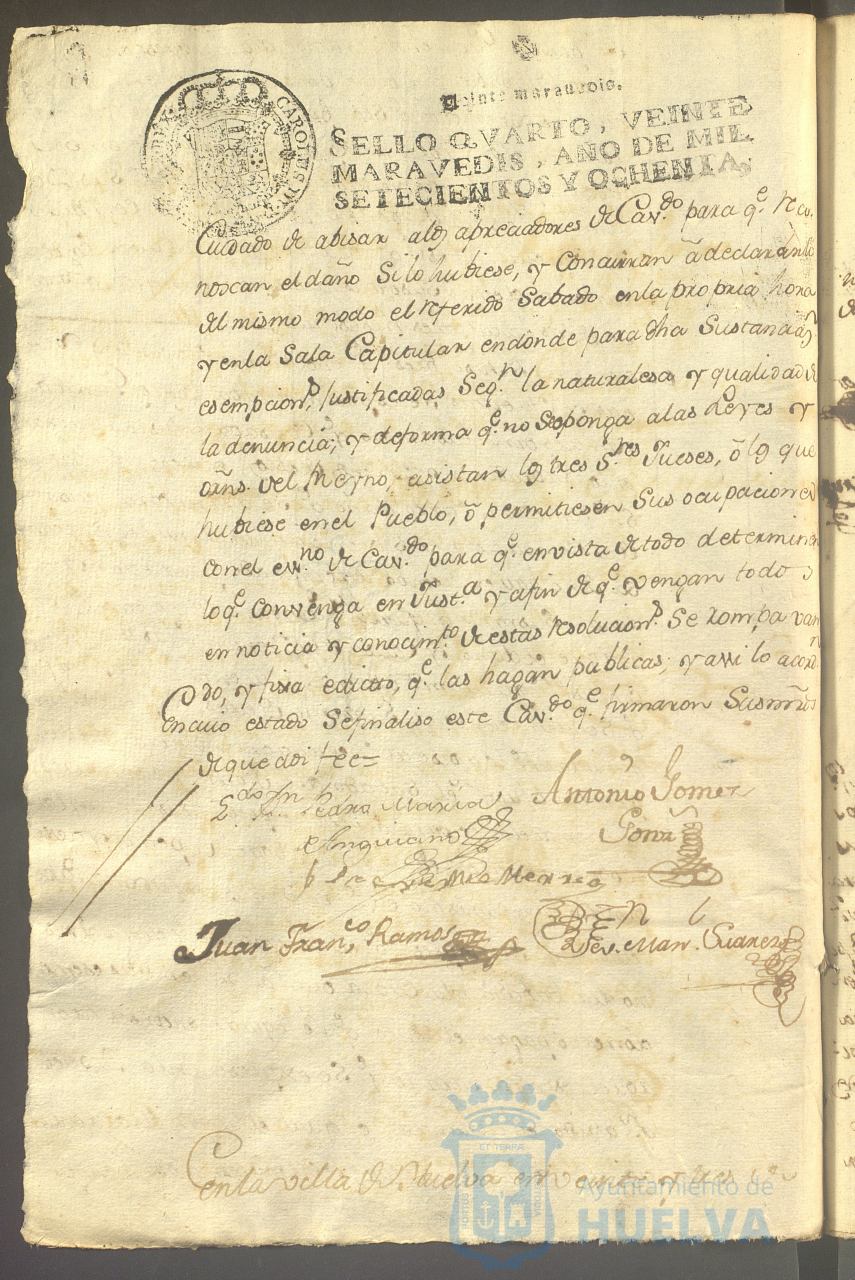 Veinte maravedis.
SELLO QVARTO, VEINTE
MARAVEDIS, AÑO DE MIL
SETECIENTOS Y OCHENTA
CAROLUS IV
REX
Cuidado de abisar a los apreciadores de Cav.do para q.e reco-
noscan el daño si lo hubiese, y concurran a declararlo
del mismo modo el referido Sabado en la propria hora
y en la Sala Capitular en donde para dha Sustancia
esempcion.s Justificadas Seg.n la naturalesa y qualidad de
la denuncia; y de forma q.e no se oponga a las Leyes y
orñs. del Reyno, asistan los tres S.res Jueses, ó los que
hubiese en el Pueblo, ó permitiesen sus ocupaciones
con el ess.no de Cav.do para q.e en vista de todo determinen
lo q.e convenga en Just.a y a fin de q.e vengan todos
en noticia y conocim.to de estas resolucion.s se rompa van
do, y fixa edictos, q.e las hagan publicas; y assi lo acord
En cuio estado se finaliso este Cav.do q.e firmaron sus mrds
de que doi fee=
Pedro Maria
Anguiano
Antonio Gomez
Gonz
Merreo
Juan Fran.co Ramos
Man. Suarez
En la villa de Huelva en veinte y tres
ET TERRÆ
Ayuntamiento de
HUELVA